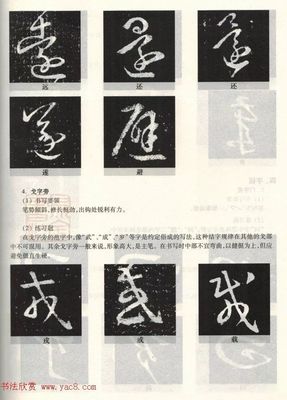 远
还
还
遂
避
4. 戈字旁
(1) 书写要领
笔势倾斜,修长挽劲,出钩处锐利有力。
(2) 练习题
在戈字旁的范字中,像“武”、“成”、“岁”等字是约定俗成的写法,这种结字规律在其他的戈部
中不可混用。其余戈字旁一般来说,形象高大,是主笔。在书写时中部不宜弯曲,以健挺为上,但应
避免僵直生硬。
戎
或
载
书法欣赏 www.yac8.com